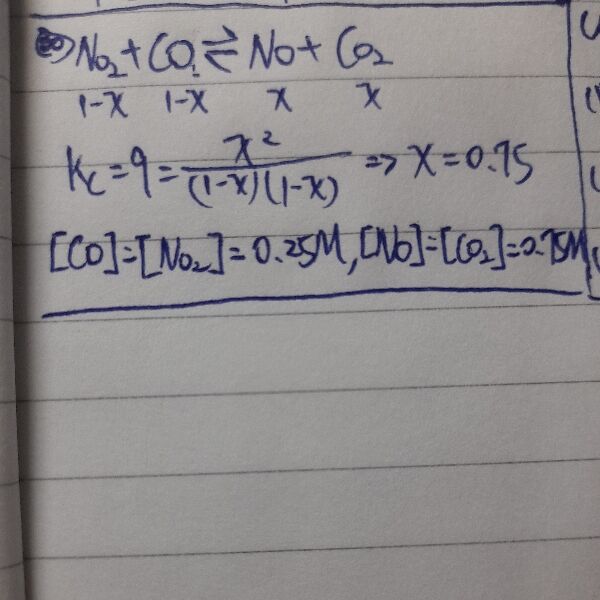 NO₂ + CO ⇌ NO + CO₂
1-x 1-x x x
Kc = 9 = x² / (1-x)(1-x) ⇒ x = 0.75
[CO] = [NO₂] = 0.25M, [NO] = [CO₂] = 0.75M